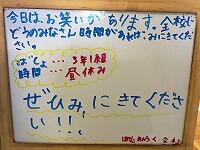 今日は、お笑いがあります。全校じ
どうのみなさん時間があれば、みにきてくだ
さい。
ばしょ…3年1組
時間…昼休み
ぜひみにきてくださ
い!!!